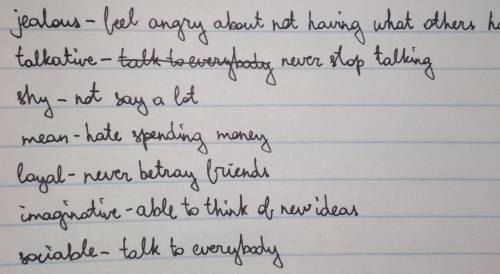 jealous - feel angry about not having what others
talkative - talk to everybody never stop talking
shy - not say a lot
mean - hate spending money
loyal - never betray friends
imaginative - able to think of new ideas
sociable - talk to everybody